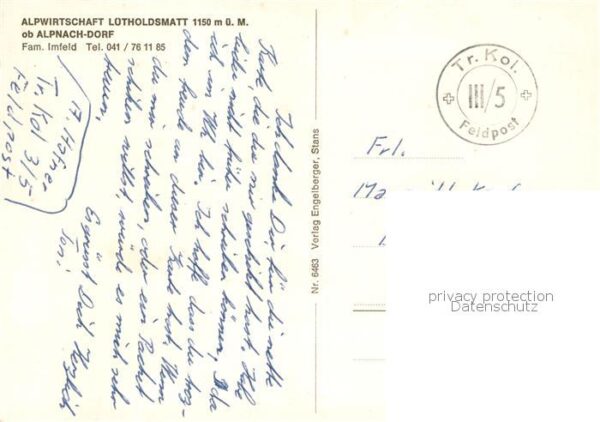 ALPWIRTSCHAFT LÜTHOLDSMATT 1150 m ü. M.
ob ALPNACH-DORF
Fam. Imfeld Tel. 041 / 76 11 85
Ich danke Dir für die nette
Karte, die du mir geschickt hast. Habe
leider nicht früher schreiben können,
ich im Wk bin. Ich hoffe dass du
Freude an dieser Karte hast. Wenn
du mir schreiben, oder ein Packet
schicken willst, würde es mich sehr
freuen.
Es grüsst Dich Herzlich
Toni
Hafner
Tr Kol 3/5
Feldpost
Nr. 6463 Verlag Engelberger, Stans
Tr. Kol.
III/5
Feldpost
Frl.
privacy protection
Datenschutz